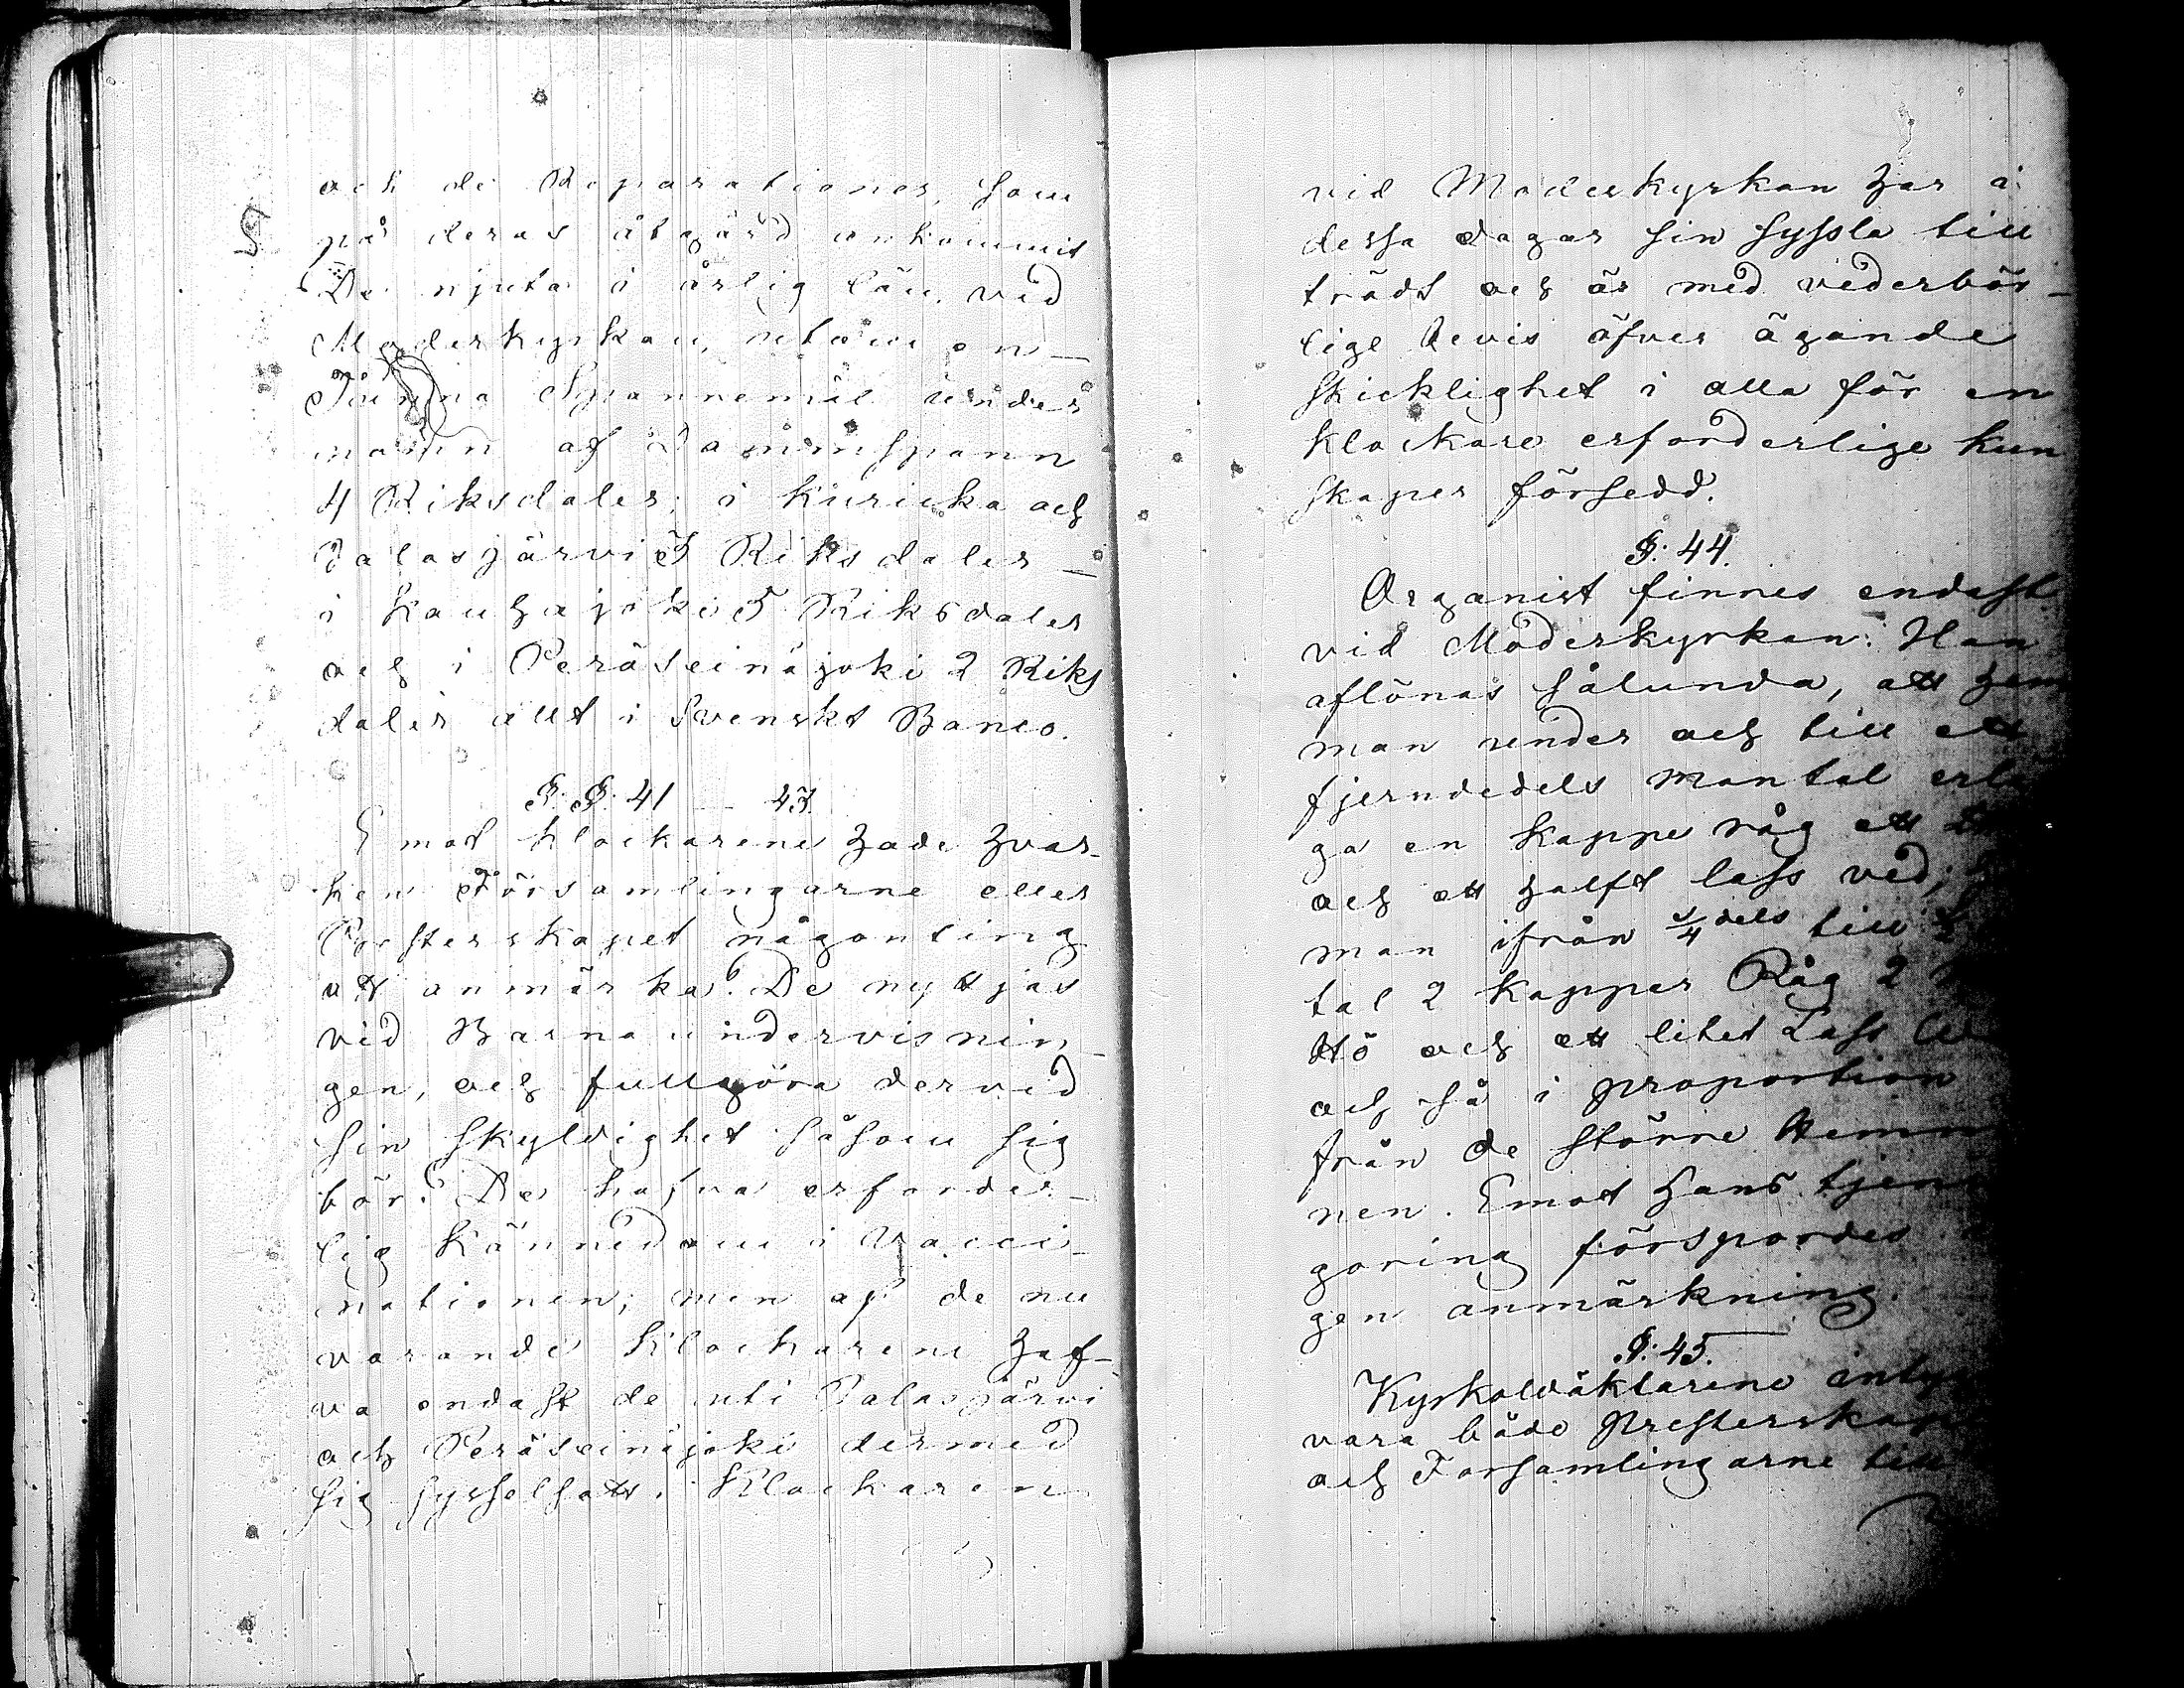 och de Reparationer, som
på deras åtgärd ankommit
De njuta i årlig lön, vid
Moderkyrkan, utom en
Tunna Spannemål under
namn af Dammspann
4 Riksdaler; i Kuricka och
Jalasjärvi 3 Riksdaler
i Kauhajoki 5 Riksdaler
och i Peräseinäjoki 2 Riks
daler allt i Svenskt Banco.
§. §. 41 - 43.
Emot klockarene hade hvar-
ken Församlingarne eller
Presterskapet någonting
att anmärka. De nyttjas
vid Barna undervisnin-
gen, och fullgöra dervid
sin skyldighet såsom sig
bör. De hafva erforder-
lig Kännedom i Vacci-
nationen; men af de nu
varande Klockarene haf-
va endast de uti Jalasjärvi
och Peräseinäjoki dermed
sig sysselsatt. Klockaren
vid Moderkyrkan har i
dessa dagar sin syssla till
trädt och är med vederbör-
lige Bevis öfver ägande
skicklighet i alla för en
klockare erforderlige kun
skaper försedd.
§. 44.
Organist finnes endast
vid Moderkyrkan. Han
aflönas sålunda, att hem
man under och till ett
fjerndedels mantal erl
ga en kappe råg ett
och ett halft lass ved;
man ifrån 1/4 dels till
tal 2 kappar Råg 2
Hö och ett litet Lass
och så i proportion
från de större Hemm
nen. Emot hans tjens
göring förspordes
gen anmärkning.
§. 45.
Kyrkoväktarene intyg
vara både Presterskap
och Församlingarne till